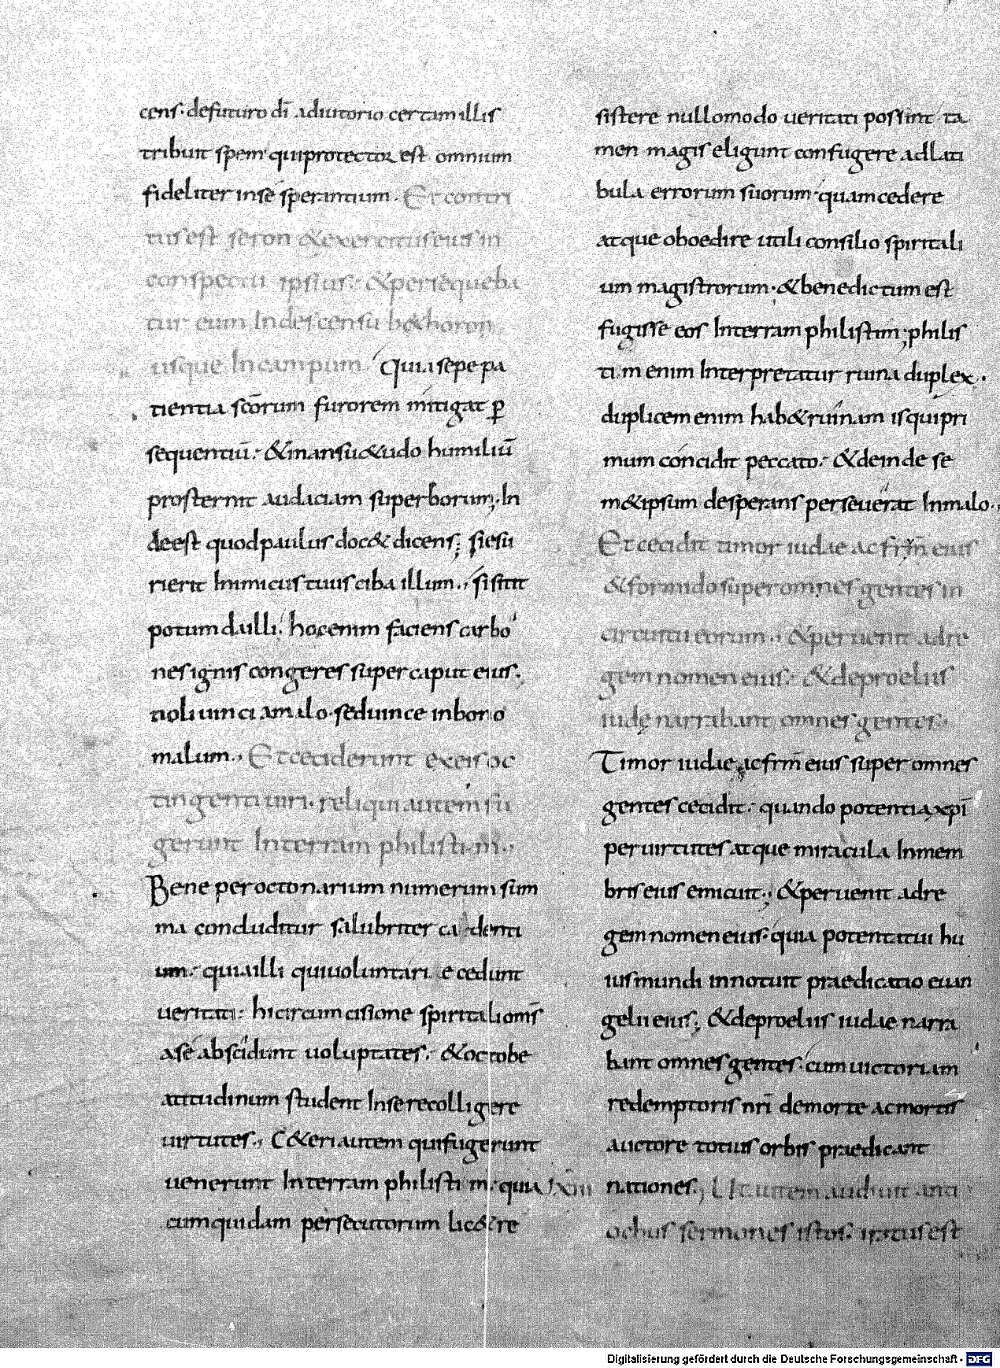 cens· defuturo dī adiutorio certam illis
tribuit spem· qui protector est omnium
fideliter inse sperantium· Et contri
tus est seron & exercitus eius in
conspectu ipsius· & persequeba
tur eum Indescensu b&horon
usque Incampum Quia sepe pa
tientia scōrum furorem mitigat ꝑ
sequentiū· & mansu&udo humiliū
prosternit audaciam superborum; In
de est quod paulus doc& dicens; si esu
rierit Inimicus tuus ciba illum·, si sitit
potum da illi· hoc enim faciens carbo
nes ignis congeres super caput eius·
noli uinci a malo· sed uince in bono
malum·, Et ceciderunt ex eis oc
tingenti uiri· reliqui autem fu
gerunt Interram philistim·,
Bene per octonarium numerum sum
ma concluditur salubriter cadenti
um· quia illi qui uoluntariae cedunt
ueritati· hi circumcisione spiritali om̄s
a se abscidunt uoluptates· & octo be
atitudinum student Inse recolligere
uirtutes·, C&eri autem qui fugerunt
uenerunt Interram philistim· quia Uxiii
cum quidam persecutorum lic& re
sistere nullomodo ueritati possint ta
men magis eligunt confugere ad lati
bula errorum suorum· quam cedere
atque oboedire utili consilio spiritali
um magistrorum· & bene dictum est
fugisse eos Interram philistim; philis
tim enim Interpretatur ruina duplex·
duplicem enim hab& ruinam is qui pri
mum concidit peccato· & deinde se
m&ipsum desperans perseuerat Inmalo·,
Et cecidit timor iudae ac frm̄ eius
& formido super omnes gentes in
circuitu eorum·, & peruenit ad re
gem nomen eius· & de proeliis
iudę narrabant omnes gentes·
Timor iudae ac frm̄ eius super omnes
gentes cecidit· quando potentia xpī
per uirtutes atque miracula Inmem
bris eius emicuit·, & peruenit ad re
gem nomen eius· quia potentatui hu
ius mundi innotuit praedicatio euan
gelii eius; & de proeliis iudae narra
bant omnes gentes· cum uictoriam
redemptoris nrī de morte ac mortis
auctore totius orbis praedicant
nationes·, Ut autem audiuit anti
ochus sermones istos· iratus est
Digitalisierung gefördert durch die Deutsche Forschungsgemeinschaft - DFG